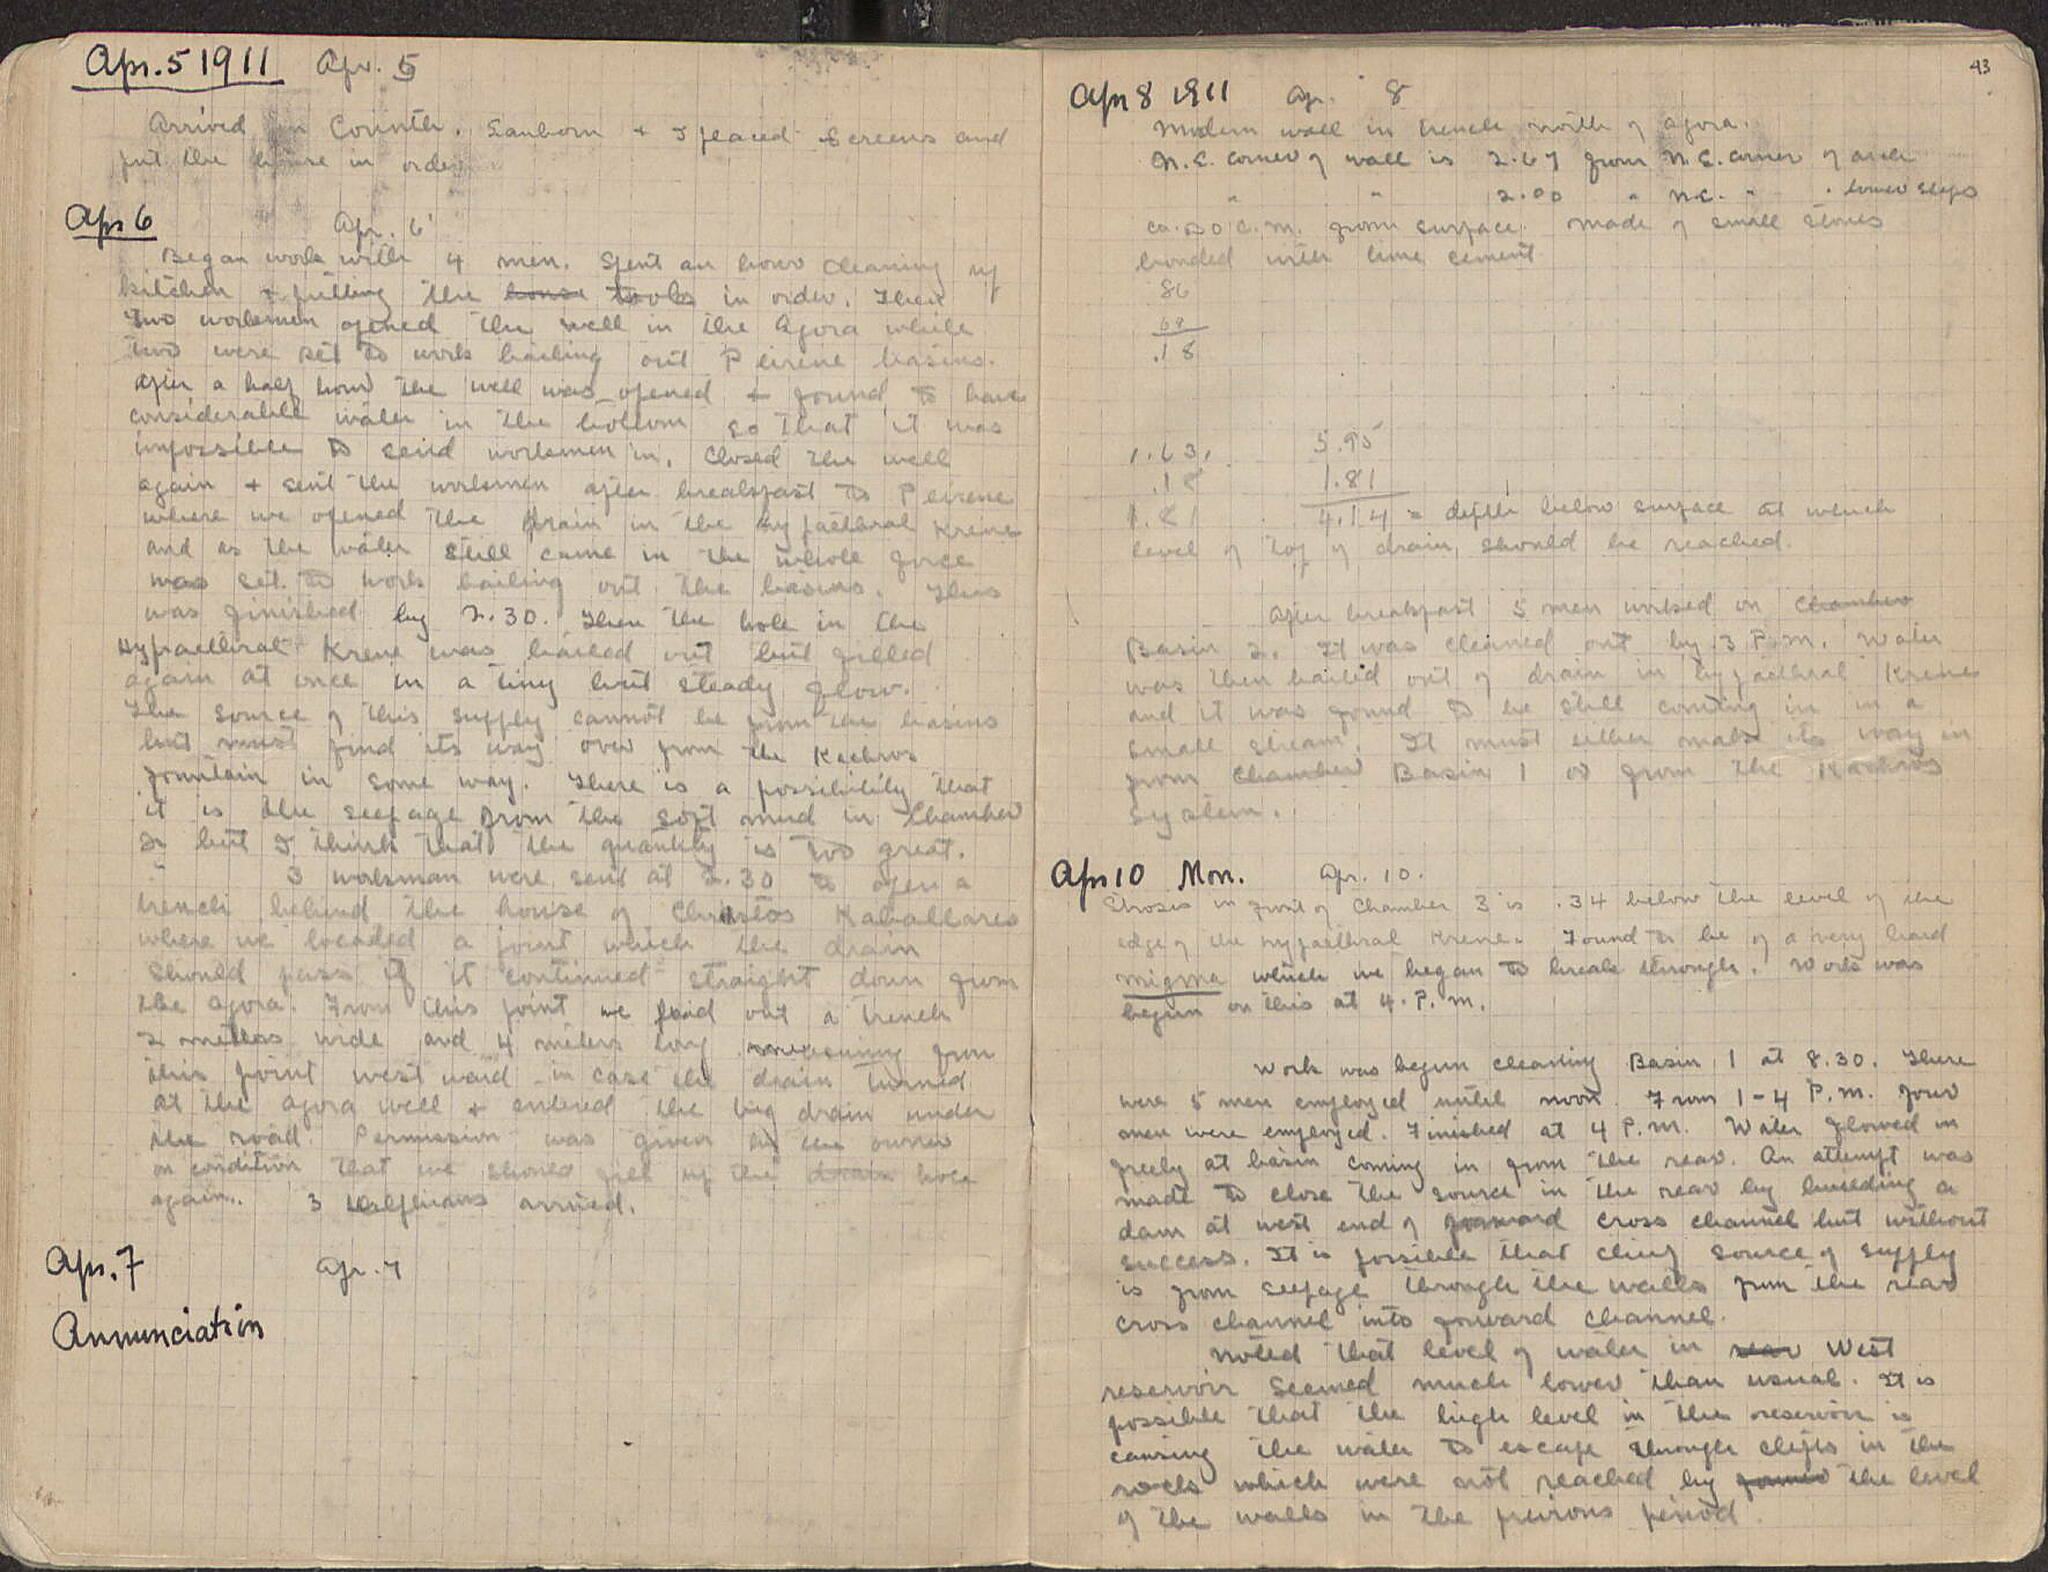 Apr. 5 1911 Apr. 5
Arrived in Corinth. Sanborn + I placed screens and
put the house in order.
Apr 6 Apr. 6
Began work with 4 men. Spent an hour cleaning up
kitchen + putting the house tools in order. Then
two workmen opened the well in the Agora while
two were set to work bailing out Peirene basins.
After a half hour the well was opened + found to have
considerable water in the bottom so that it was
impossible to send workmen in. Closed the well
again + sent the workmen after breakfast to Peirene
where we opened the drain in the hypaethral Krene
and as the water still came in the whole force
was set to work bailing out the basins. This
was finished by 2.30. Then the hole in the
Hypaethral Krene was bailed out but filled
again at once in a tiny but steady flow.
The source of this supply cannot be from the basins
but must find its way over from the Kachros
fountain in some way. There is a possibility that
it is the seepage from the soft mud in Chamber
2 but I think that the quantity is too great.
3 workman were sent at 2.30 to open a
trench behind the house of Christos Kaballares
where we located a point which the drain
should pass if it continued straight down from
the agora. From this point we laid out a trench
2 meters wide and 4 meters long measuring from
this point westward in case the drain turned
at the agora well + entered the big drain under
the road. Permission was given by the owner
on condition that we should fill up the drain hole
again. 3 arrived.
Apr. 7 Apr. 7
Annunciation
43
Apr 8 1911 Ap. 8
Modern wall in trench north of agora.
N.E. corner of wall is 2.67 from N.E. corner of arch
" " 2.00 " N.E. " " lower steps
ca. 80 c.m. from surface. Made of small stones
bonded with lime cement
86
68
.18
1.63. 5.95
.18 1.81
1.81 4.14 = depth below surface at which
level of top of drain should be reached.
After breakfast 5 men worked on Chamber
Basin 2. It was cleaned out by 3 P.M. Water
was then bailed out of drain in hypaethral Krene
and it was found to be still coming in in a
small stream. It must either make its way in
from Chamber Basin 1 or from the Kachros
system.
Apr 10 Mon. Apr. 10.
Stroses in front of Chamber 3 is .34 below the level of the
edge of the hypaethral Krene. Found to be of a very hard
migma which we began to break through. Work was
begun on this at 4. P.M.
Work was begun cleaning Basin 1 at 8.30. There
were 5 men employed until noon. From 1-4 P.M. four
men were employed. Finished at 4 P.M. Water flowed in
freely at basin coming in from the rear. An attempt was
made to close the source in the rear by building a
dam at west end of forward cross channel but without
success. It is possible that chief source of supply
is from seepage through the walls from the rear
cross channel into forward channel.
Noted that level of water in rear West
reservoir seemed much lower than usual. It is
possible that the high level in the reservoir is
causing the water to escape through clefts in the
rocks which were not reached by former the level
of the walls in the previous period.